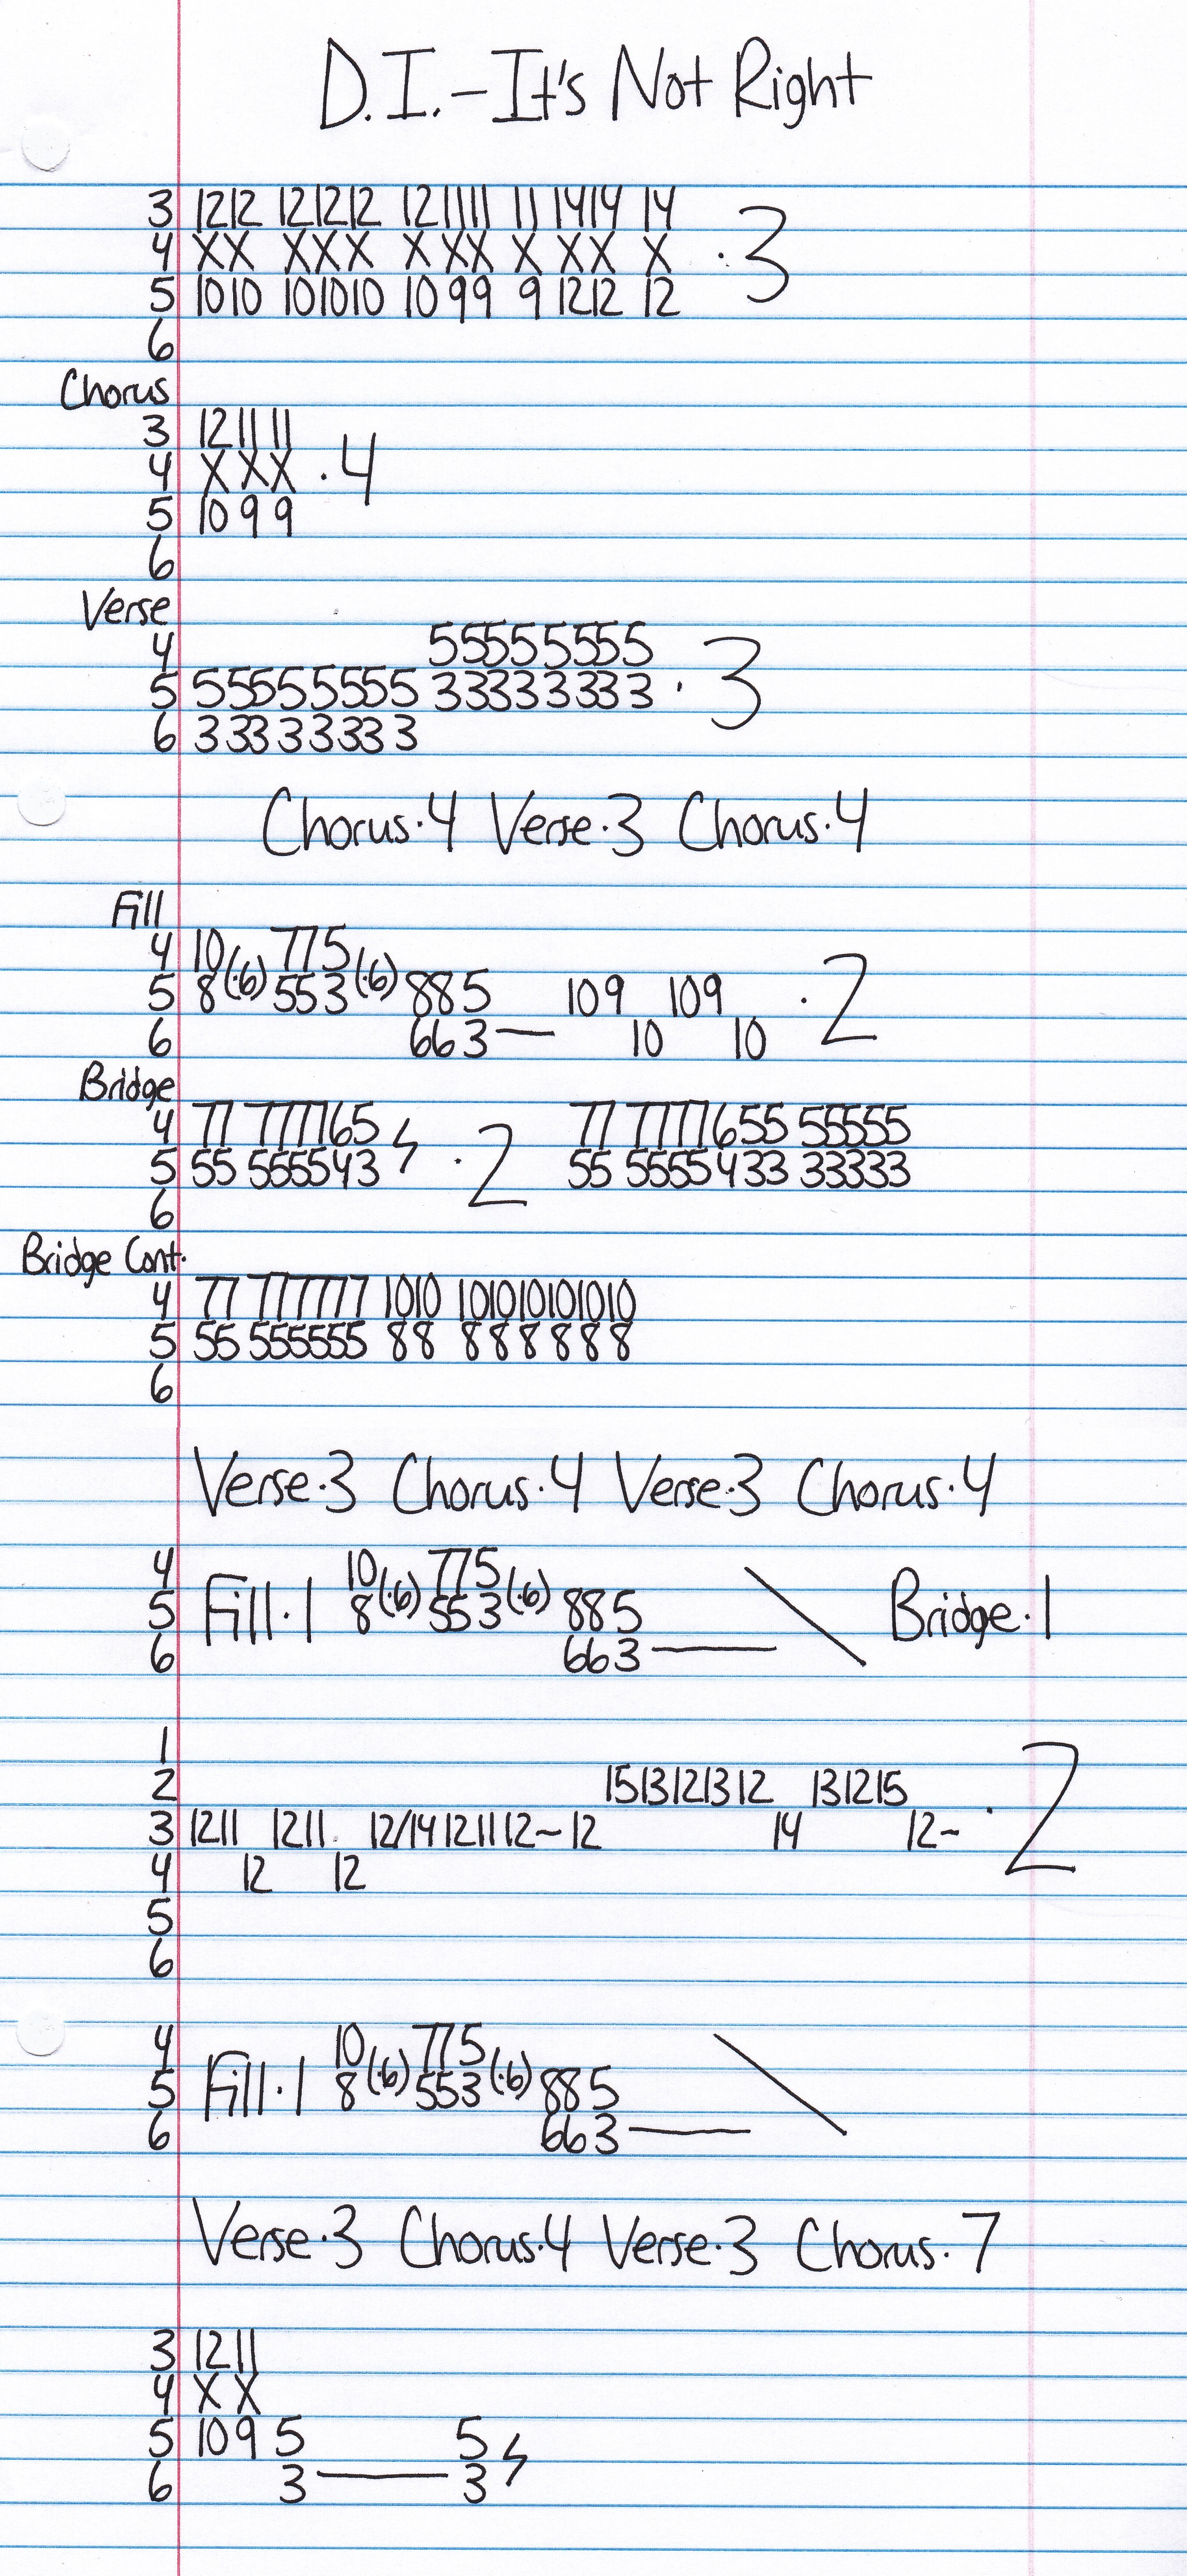 D.I. - It's Not Right
3 1212 121212 121111 11 1414 14
4 XX XXX X XX X XX X · 3
5 1010 101010 10 99 9 1212 12
6
Chorus
3 12 11 11
4 X X X · 4
5 10 9 9
6
Verse
4 55555555
5 55555555 33333333 · 3
6 33333333
Chorus · 4 Verse · 3 Chorus · 4
Fill
4 10 775
5 8 (·6) 553 (·6) 885 109 109 · 2
6 663— 10 10
Bridge
4 77 777765 77 7777655 55555
5 55 555543 ϟ · 2 55 5555433 33333
6
Bridge Cont.
4 77 777777 1010 101010101010
5 55 555555 88 888888
6
Verse · 3 Chorus · 4 Verse · 3 Chorus · 4
4 10 775
5 Fill · 1 8 (·6) 553 (·6) 885 \ Bridge · 1
6 663—
1
2 1513121312 131215
3 1211 1211 12/14121112~12 14 12~ · 2
4 12 12
5
6
4 10 775
5 Fill · 1 8 (·6) 553 (·6) 885 \
6 663—
Verse · 3 Chorus · 4 Verse · 3 Chorus · 7
3 12 11
4 X X
5 10 9 5 5 ϟ
6 3—3